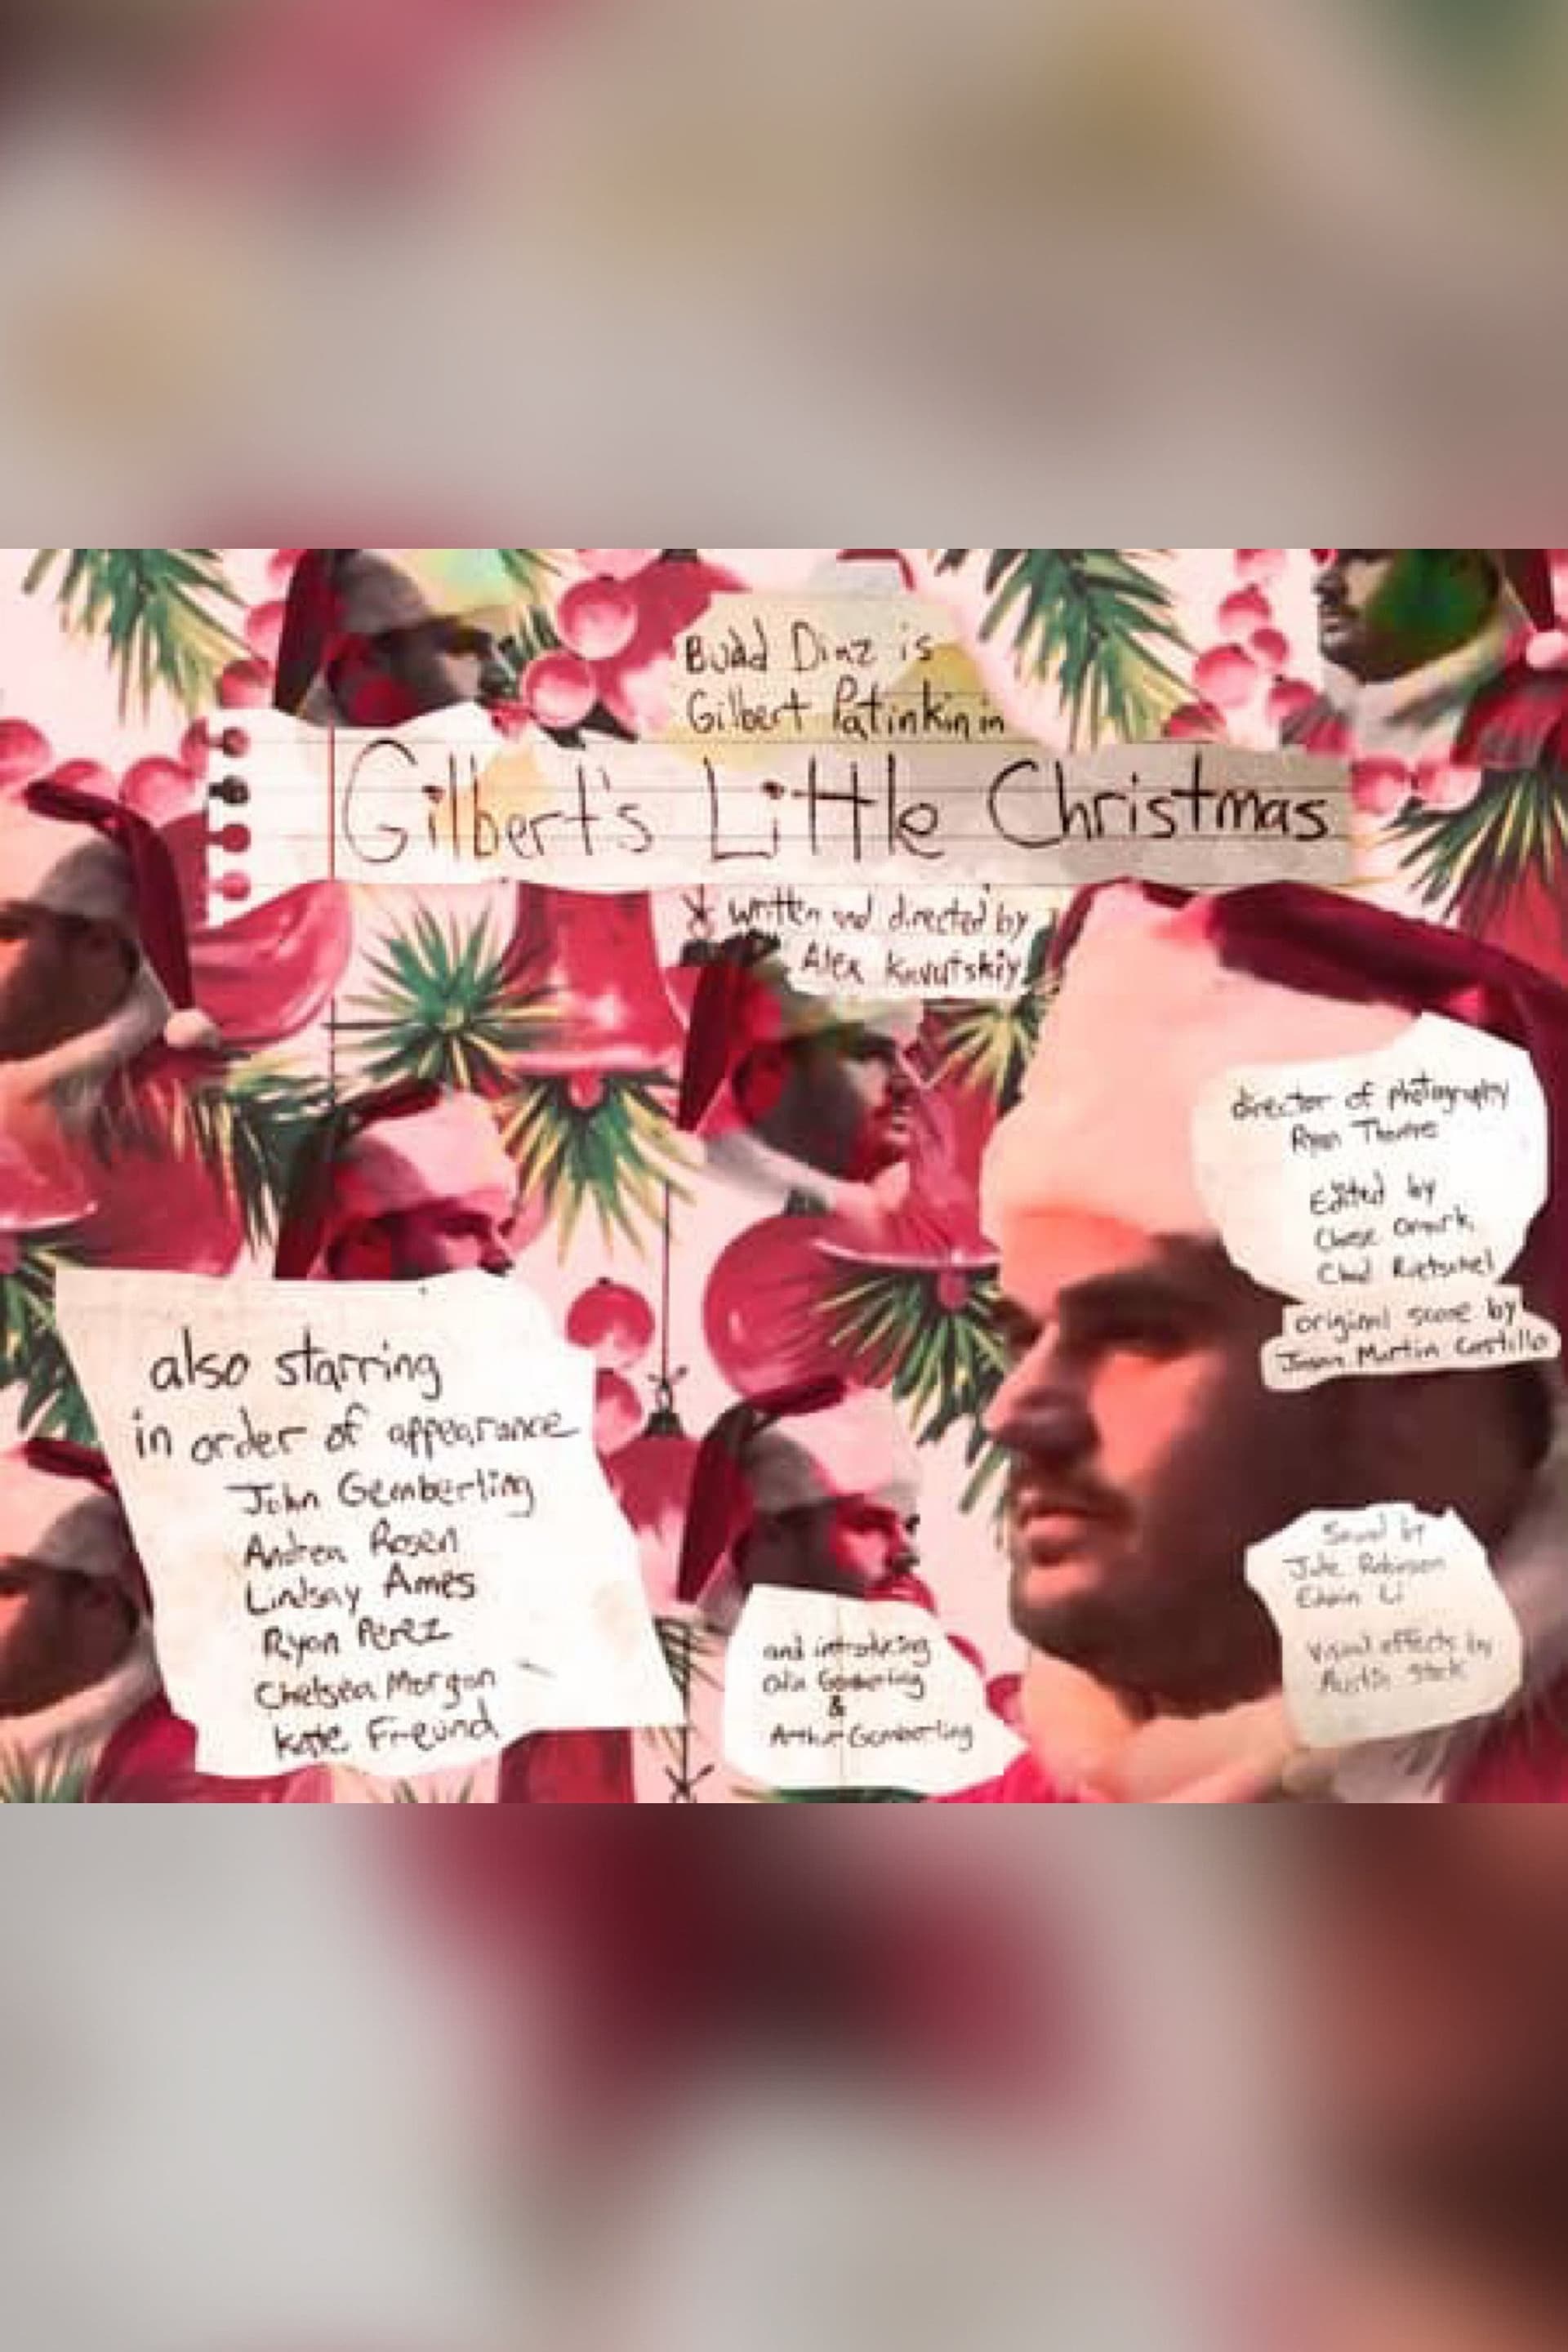 Budd Diaz is
Gilbert Patinkin in
Gilbert's Little Christmas
written and directed by
Alex Kavutskiy
also starring
in order of appearance
John Gemberling
Andrea Rosen
Lindsay Ames
Ryan Perez
Chelsea Morgan
Kate Freund
and introducing
Gemberling
&
Arthur Gemberling
director of photography
Ryan Thomas
Edited by
Chad Rietschel
original score by
Jason Martin Castillo
Sound by
Robinson
Edwin Li
visual effects by
Austin